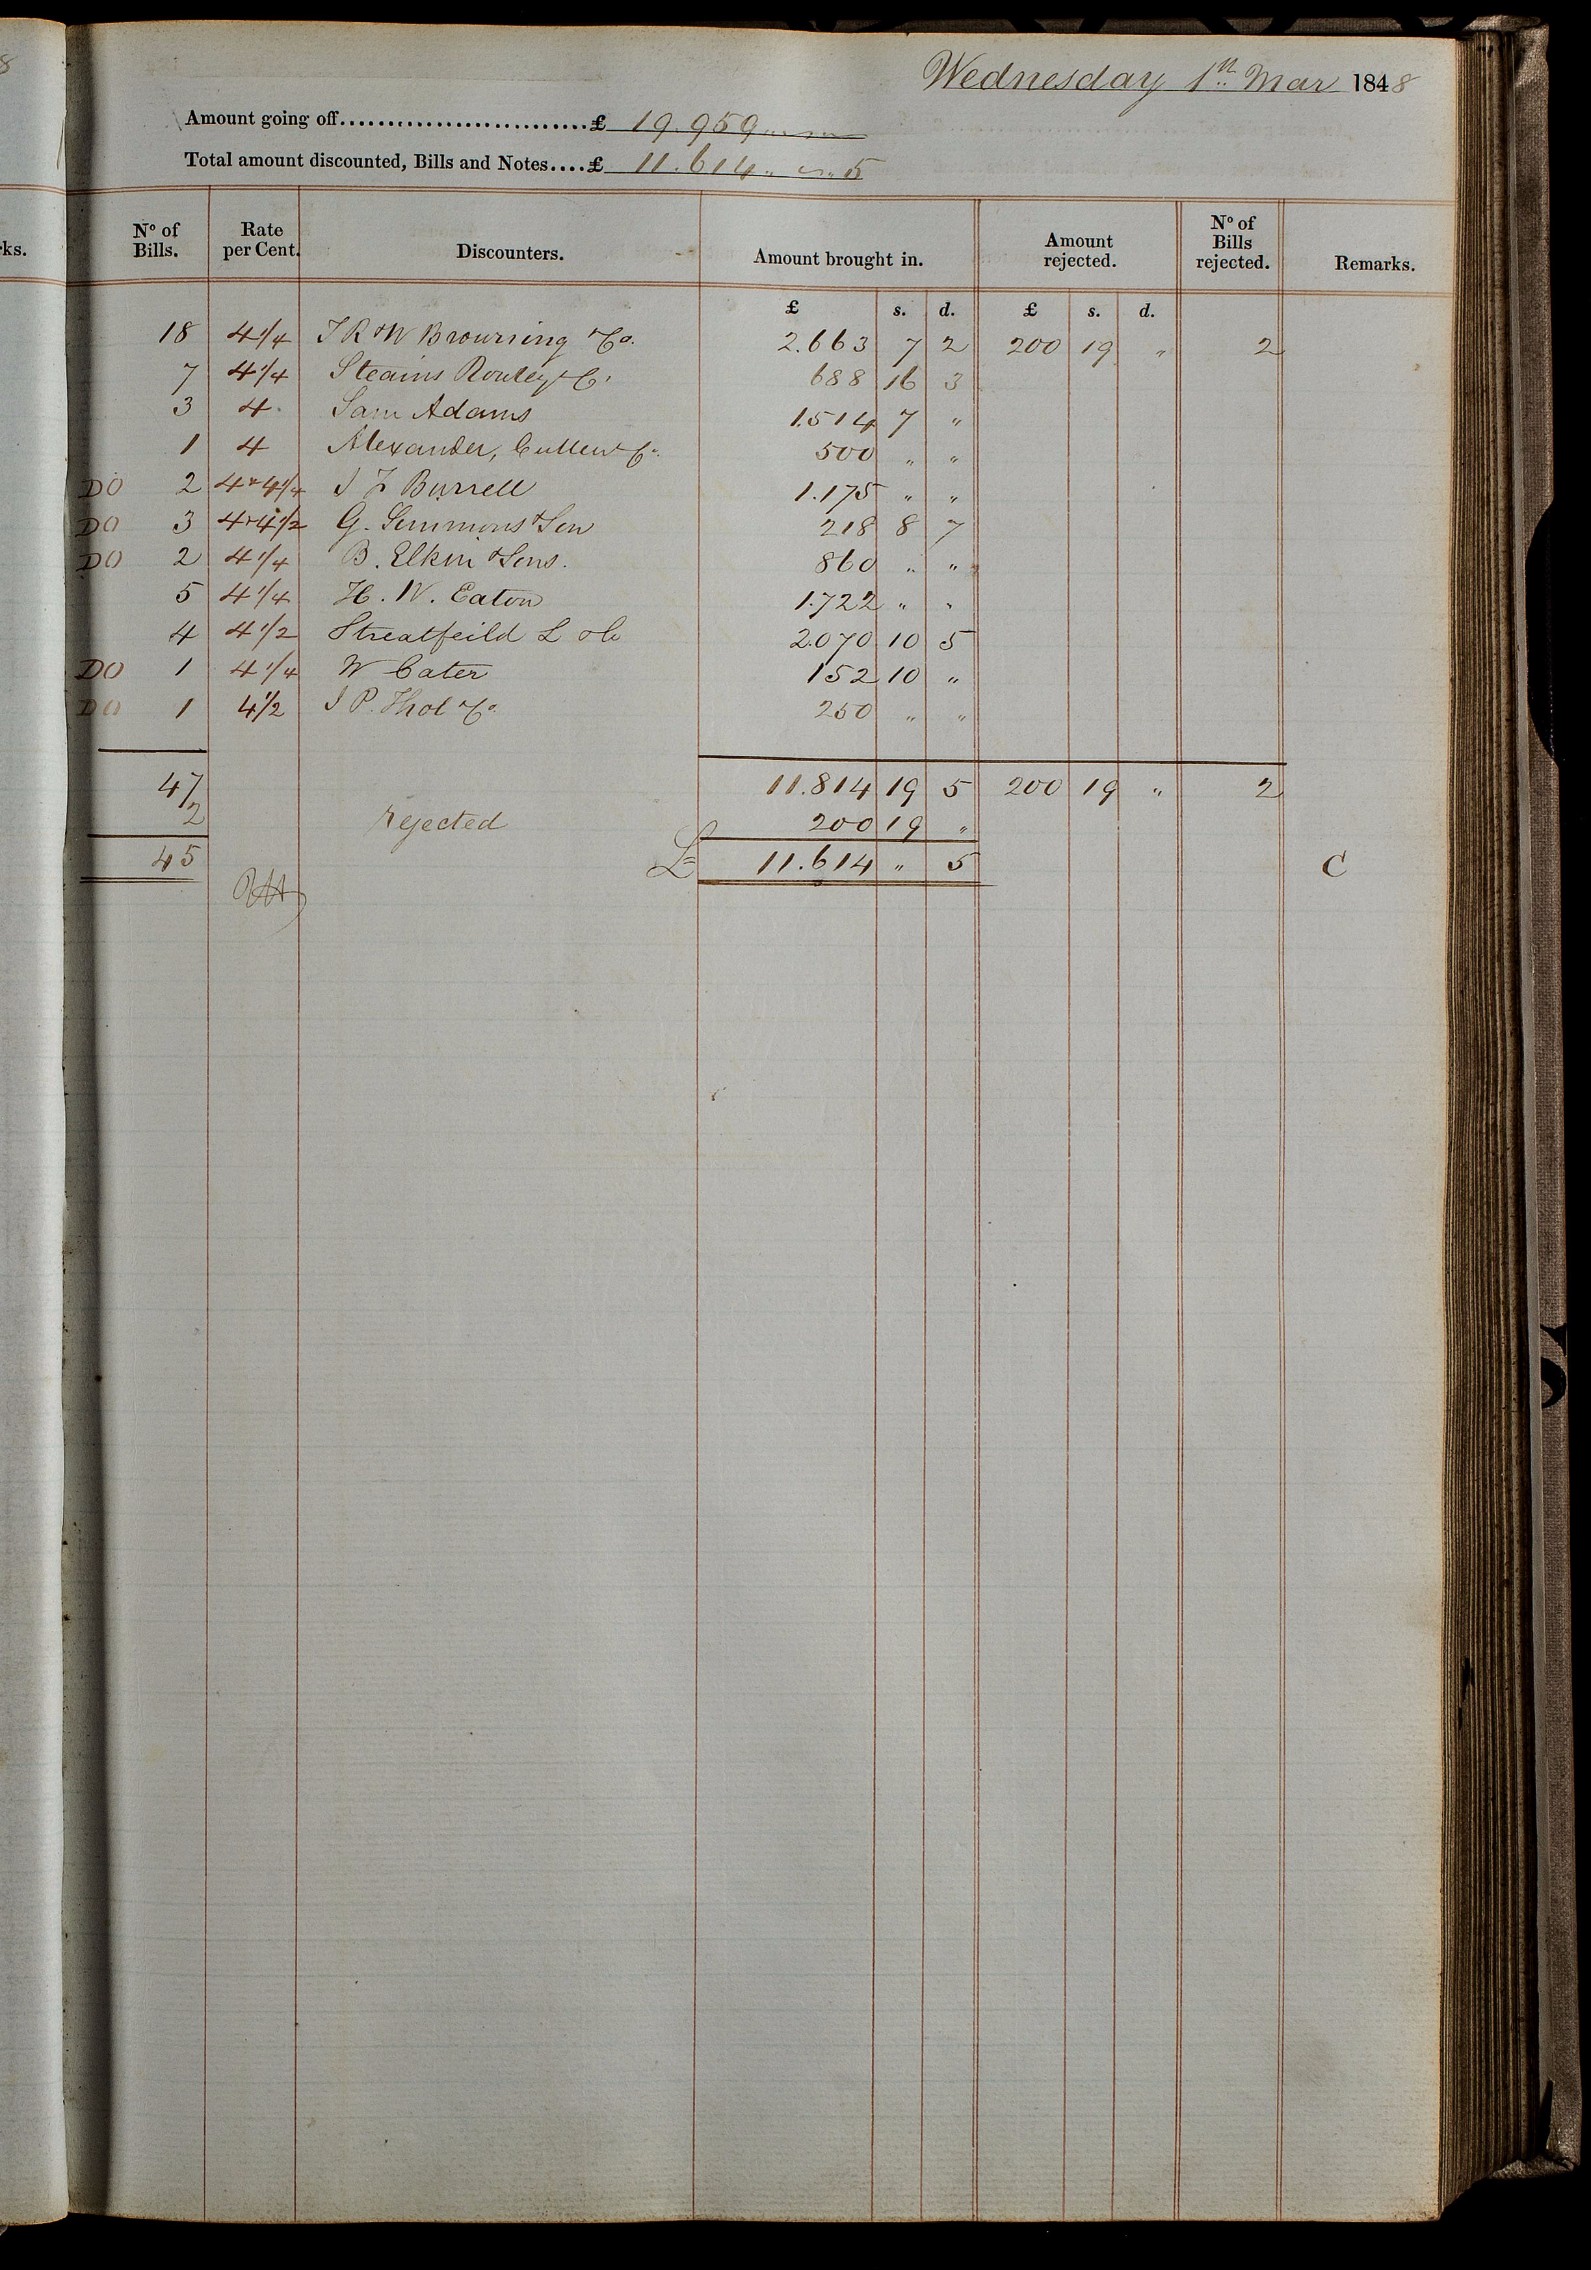 8
Wednesday 1th Mar 1848
Amount going off..........................£ 19.959 " " "
Total amount discounted, Bills and Notes....£ 11.614 " " 5
rks.
No of Bills. Rate per Cent. Discounters. Amount brought in. Amount rejected. No of Bills rejected. Remarks.
£ s. d. £ s. d.
18 4 1/4 T R & W Brownsing & Co. 2.663 7 2 200 19 " 2
7 4 1/4 Steains Rowley & Co. 688 16 3
3 4 Sam Adams 1.514 7 "
1 4 Alexander, Cullen & Co. 500 " "
DO 2 4 & 4 1/4 J F Burrell 1.175 " "
DO 3 4 & 4 1/2 G. Simmons & Son 218 8 7
DO 2 4 1/4 B. Elkin & Sons. 860 " "
5 4 1/4 H. W. Eaton 1.722 " "
4 4 1/2 Streatfeild L & Co 2.070 10 5
DO 1 4 1/4 W Cater 152 10 "
DO 1 4 1/2 J P. Thol & Co. 250 " "
47 11.814 19 5 200 19 " 2
2 rejected 200 19 "
45 £ 11.614 " 5 C